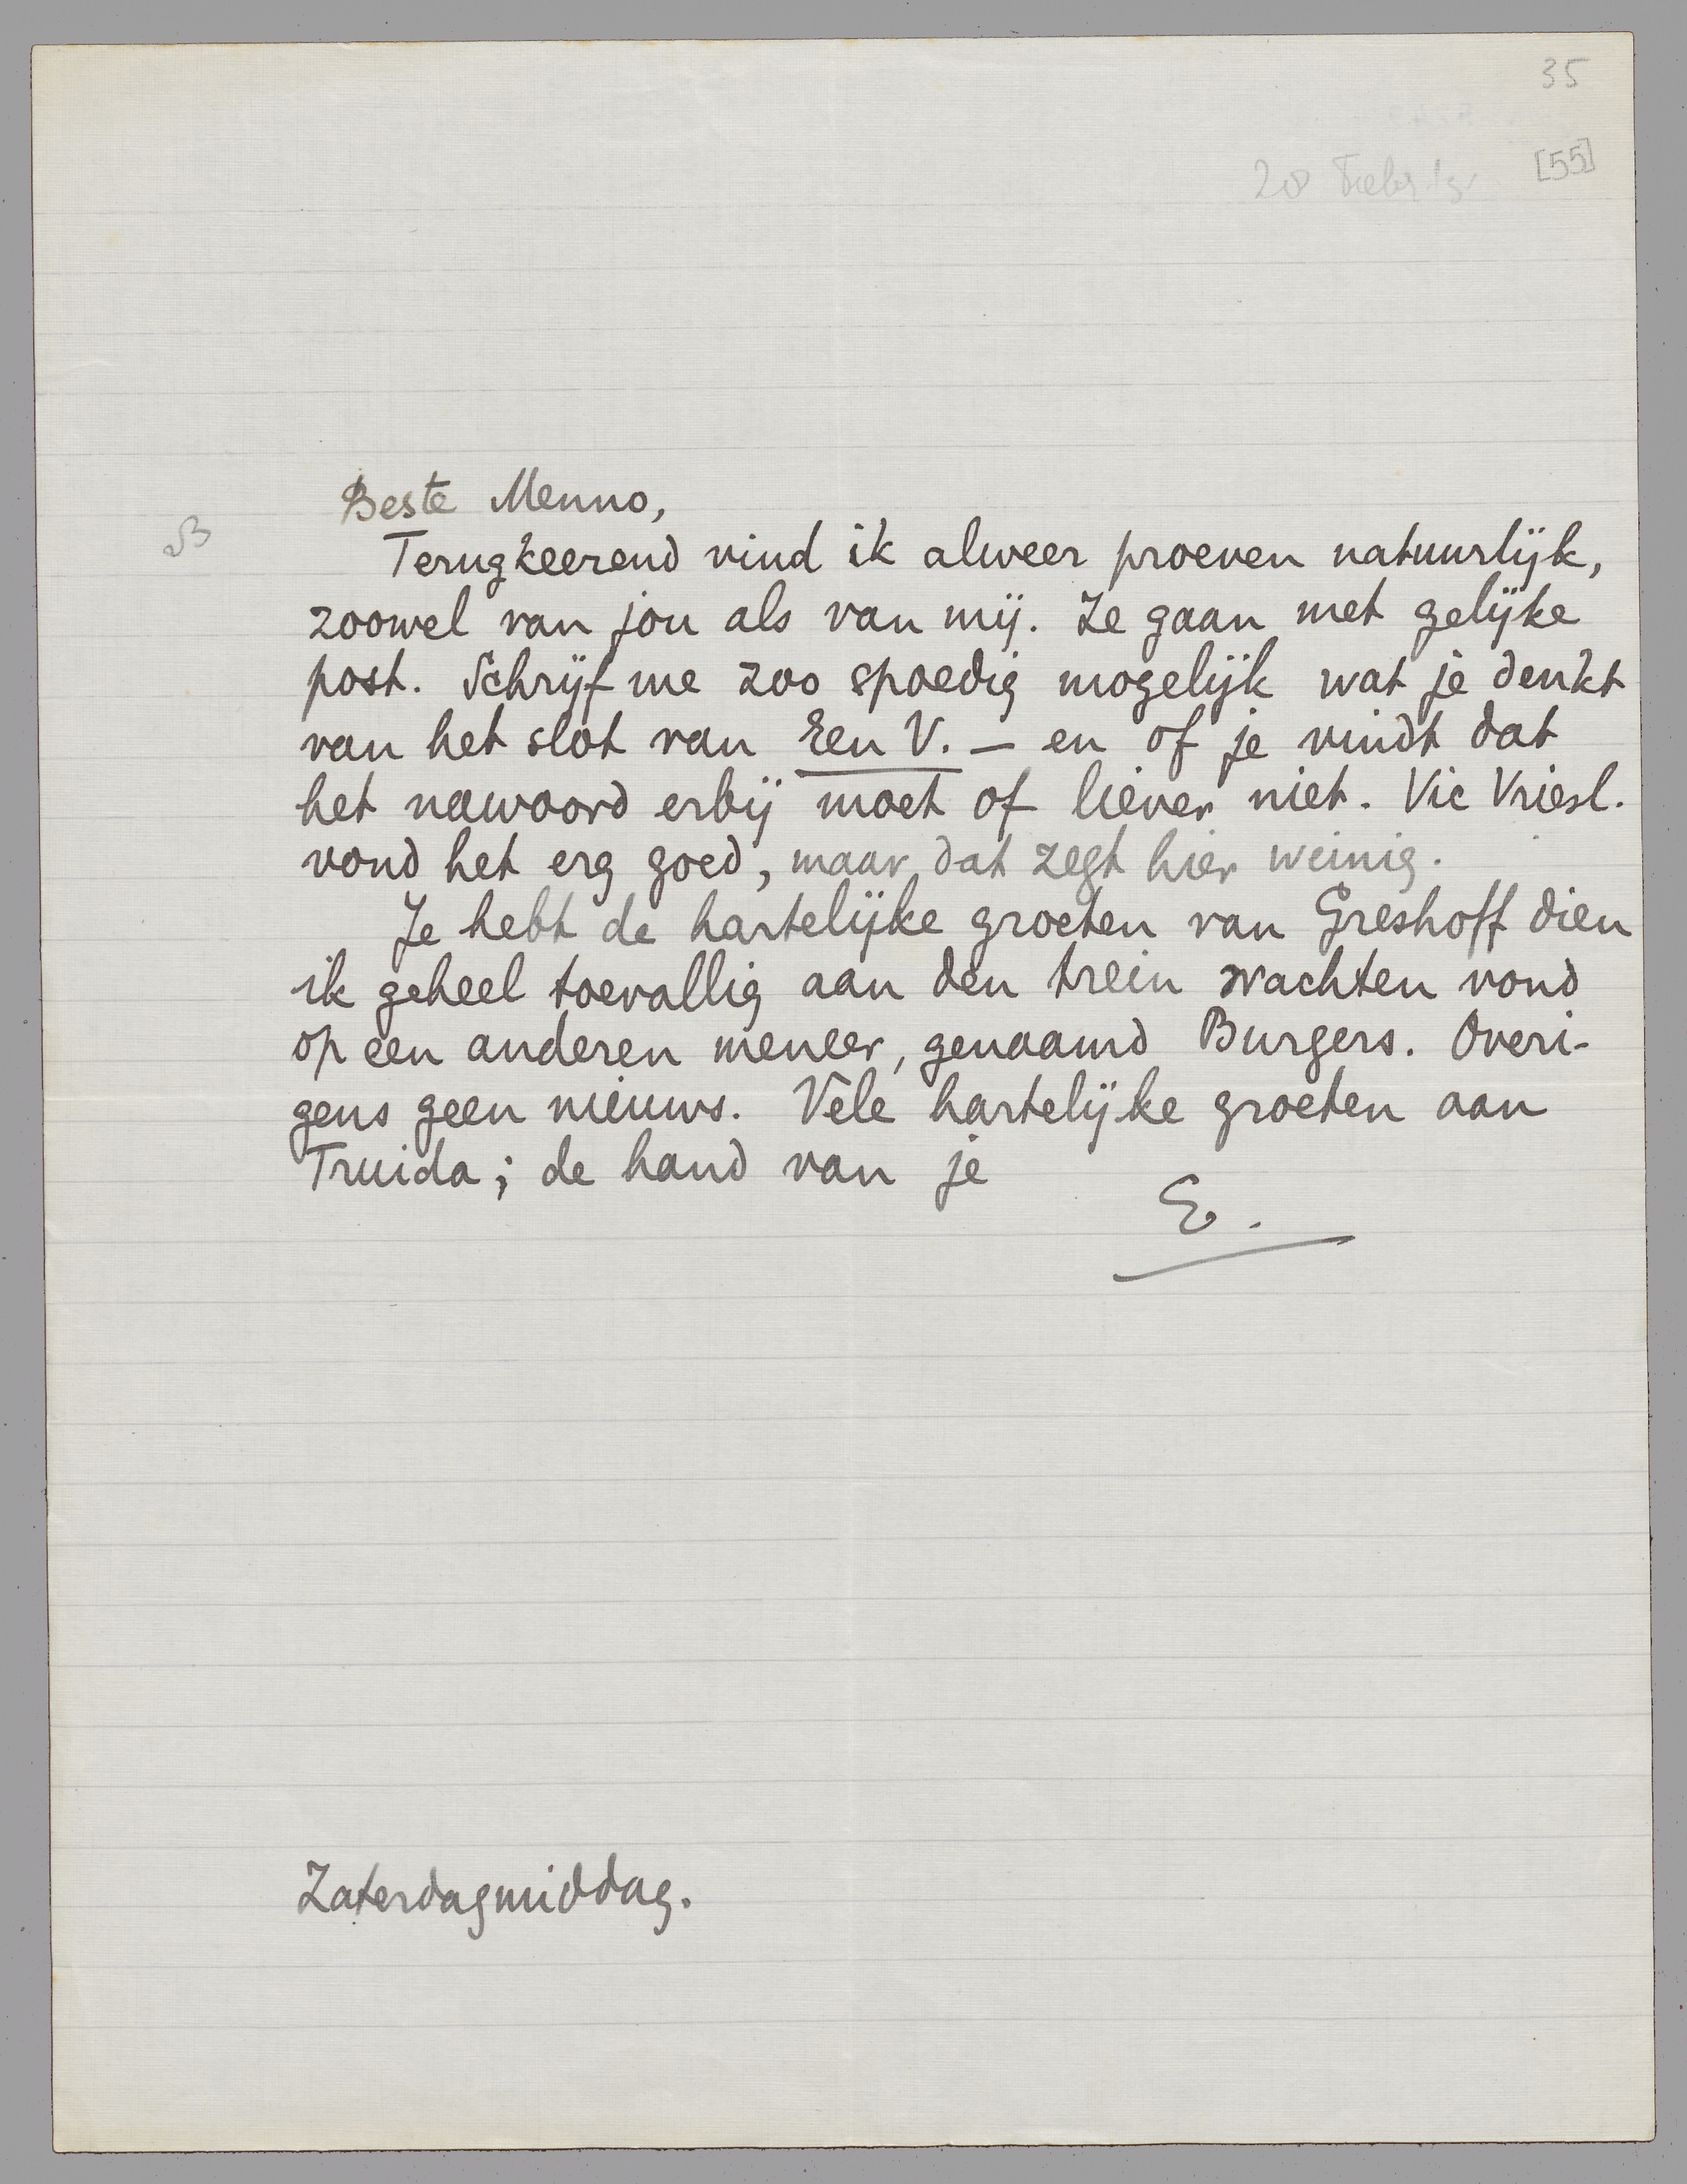 35
[55]
Beste Menno,
Terugkeerend vind ik alweer proeven natuurlijk,
zoowel van jou als van mij. Ze gaan met gelijke
post. Schrijf me zoo spoedig mogelijk wat je denkt
van het slot van Een V. — en of je vindt dat
het nawoord erbij moet of liever niet. Vic Vriesl.
vond het erg goed, maar dat zegt hier weinig.
Je hebt de hartelijke groeten van Greshoff dien
ik geheel toevallig aan den trein wachten vond
op een anderen meneer, genaamd Burgers. Overi-
gens geen nieuws. Vele hartelijke groeten aan
Truida; de hand van je
E.
Zaterdagmiddag.